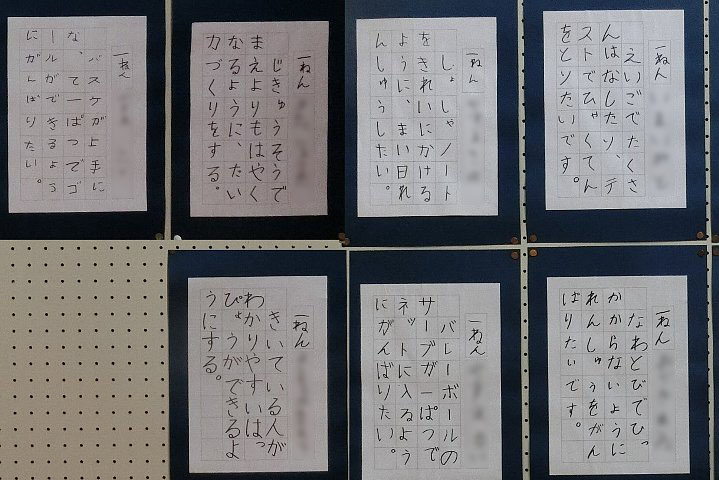 一ねん
えいごでたくさ
んはなしたり、テ
ストでひゃくてん
をとりたいです。
一ねん
しょしゃノート
をきれいにかける
ように、まい日れ
んしゅうしたい。
一ねん
じきゅうそうで
まえよりもはやく
なるように、たい
力づくりをする。
一ねん
バスケが上手に
な、て一ぱつでゴ
ールができるよう
にがんばりたい。
一ねん
なわとびでひっ
かからないように
れんしゅうをがん
ばりたいです。
一ねん
バレーボールの
サーブが一ぱつで
ネットに入るよう
にがんばりたい。
一ねん
きいている人が
わかりやすいはっ
ぴょうができるよ
うにする。